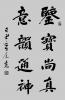 鑒寶尚真
意韻通神